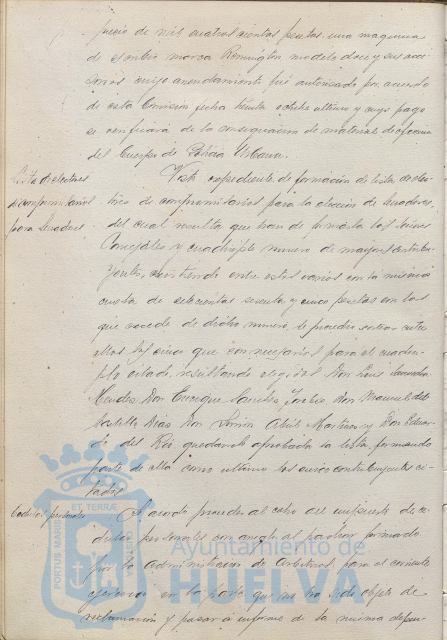 precio de mil cuatrocientas pesetas una maquina
de escribir marca Remington modelo doce y sus acce
sorios cuyo arrendamiento fué autorizado por acuerdo
de esta Comisión fecha treinta octubre último y cuyo pago
se verificará de la consignacion de material de oficina
del Cuerpo de Policia Urbana.
Lista de electores
de compromisarios
para Senadores
Visto expediente de formación de lista de elec
tores de compromisarios para la elección de Senadores,
del cual resulta que han de formarla los Señores
Concejales y cuadruple numero de mayores contribu
yentes, existiendo entre estos varios con la misma
cuota de setecientas sesenta y cinco pesetas con las
que excede de dicho numero, se procede sortear entre
ellos los cinco que son necesarios para el cuadru
plo citado, resultando elegidos Don Luis
Mendez, Don Enrique Don Manuel del
Castillo Don Simón Martinez y Don Eduar
do del Rio quedando aprobada la lista formando
parte de ella como ultimos los cinco contribuyentes ci
tados
Cedulas personales
Se acuerda proceder al cobro del impuesto de ce
dulas personales con arreglo al padron formado
por la Administracion de Arbitrios para el corriente
ejercicio en la parte que no ha sido objeto de
reclamación y pasar a informe de la misma depen
PORTUS MARIS ET TERRÆ CUSTODIA
Ayuntamiento de
HUELVA